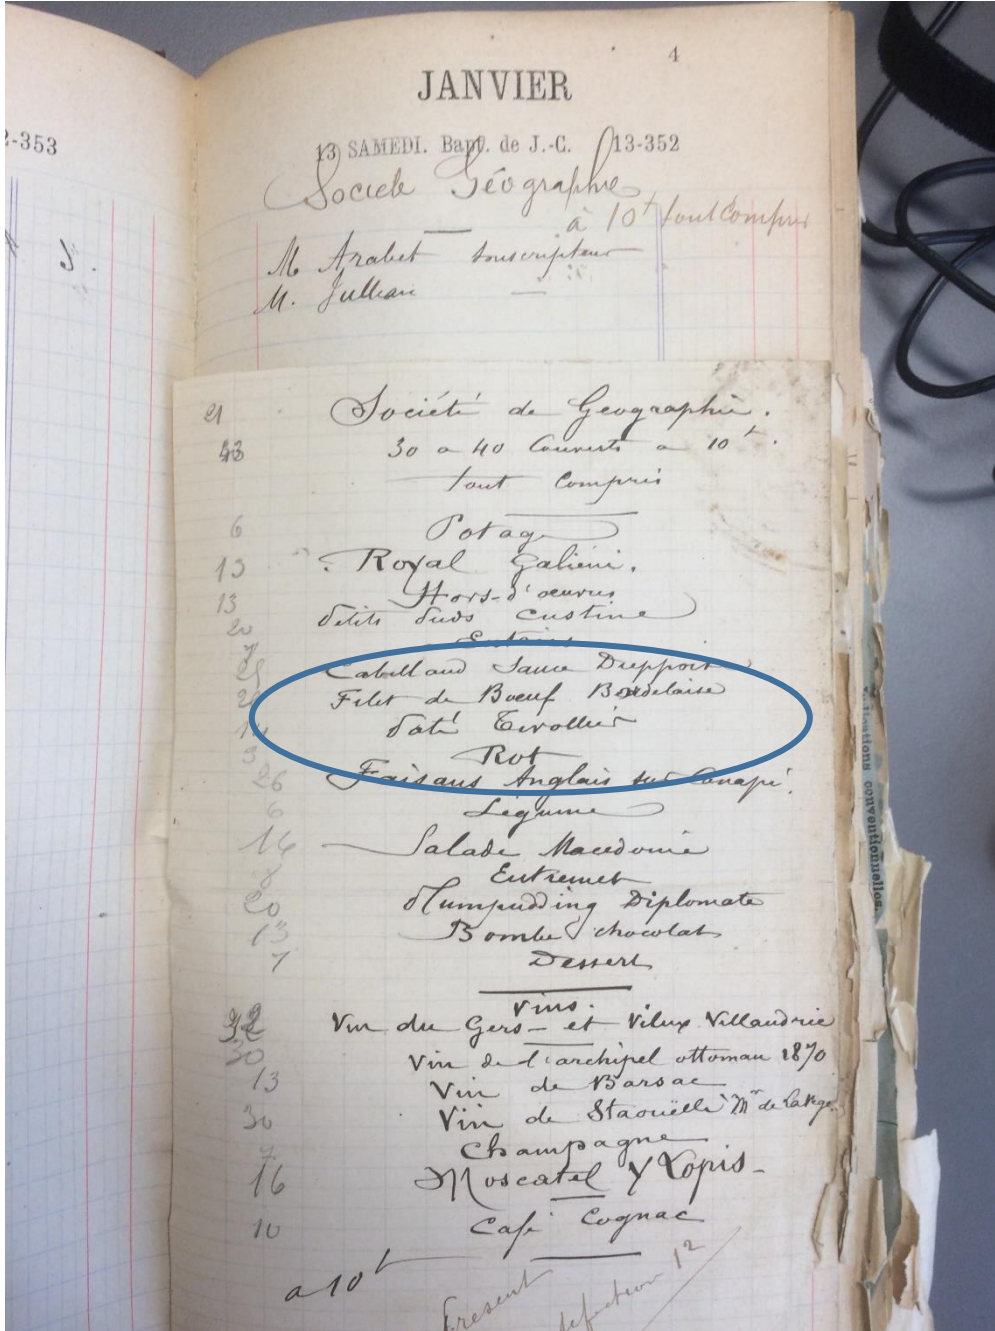 2-353
4
JANVIER
13 SAMEDI. Bapt. de J.-C. 13-352
Societe Géographie
à 10f tout Compris
M Arabet souscripteur
M. Jullian —
21 Société de Geographie.
43 30 a 40 Couverts a 10f.
tout Compris
6 Potage
13 Royal Galieni.
13 Hors-d'oeuvres
20 Petits Custine
7 Entrées
25 Cabillaud Sauce Dieppoise
Filet de Boeuf Bordelaise
14 Paté Tivollier
3 Rot
26 Faisans Anglais sur Canapé.
6 Légume
14 Salade Macedoine
Entremet
20 Plumpudding Diplomate
13 Bombe chocolat
7 Dessert
Vins.
Vin du Gers - et Vieux Villaudric
30 Vin de l'archipel ottoman 1870
13 Vin de Barsac
30 Vin de Staouëlli Mr de
7 Champagne
16 Moscatel Y Lopis -
10 Café Cognac
a 10f
Present
defection 12
conventionnelles.